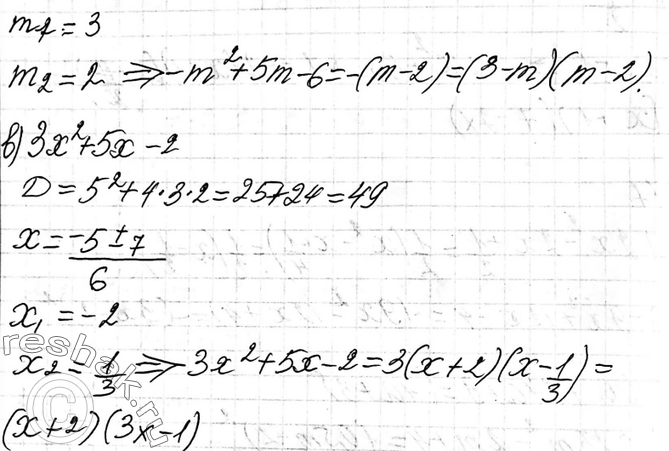 m₁ = 3
m₂ = 2 ⇒ -m²+5m-6 = -(m-2) = (3-m)(m-2).
в) 3x²+5x-2
D = 5²+4·3·2 = 25+24 = 49
x = (-5±7)/6
x₁ = -2
x₂ = 1/3 ⇒ 3x²+5x-2 = 3(x+2)(x-1/3) =
(x+2)(3x-1)
reshak.ru